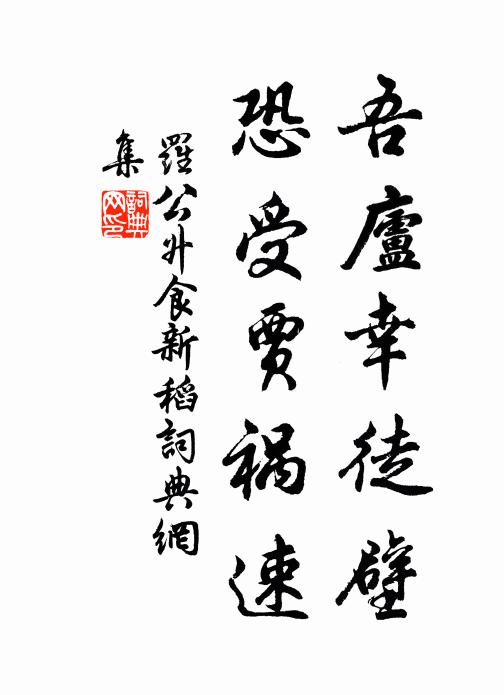 吾廬幸徒壁
恐受賈禍速
羅公升食新稻詞典網
集
詞典网印